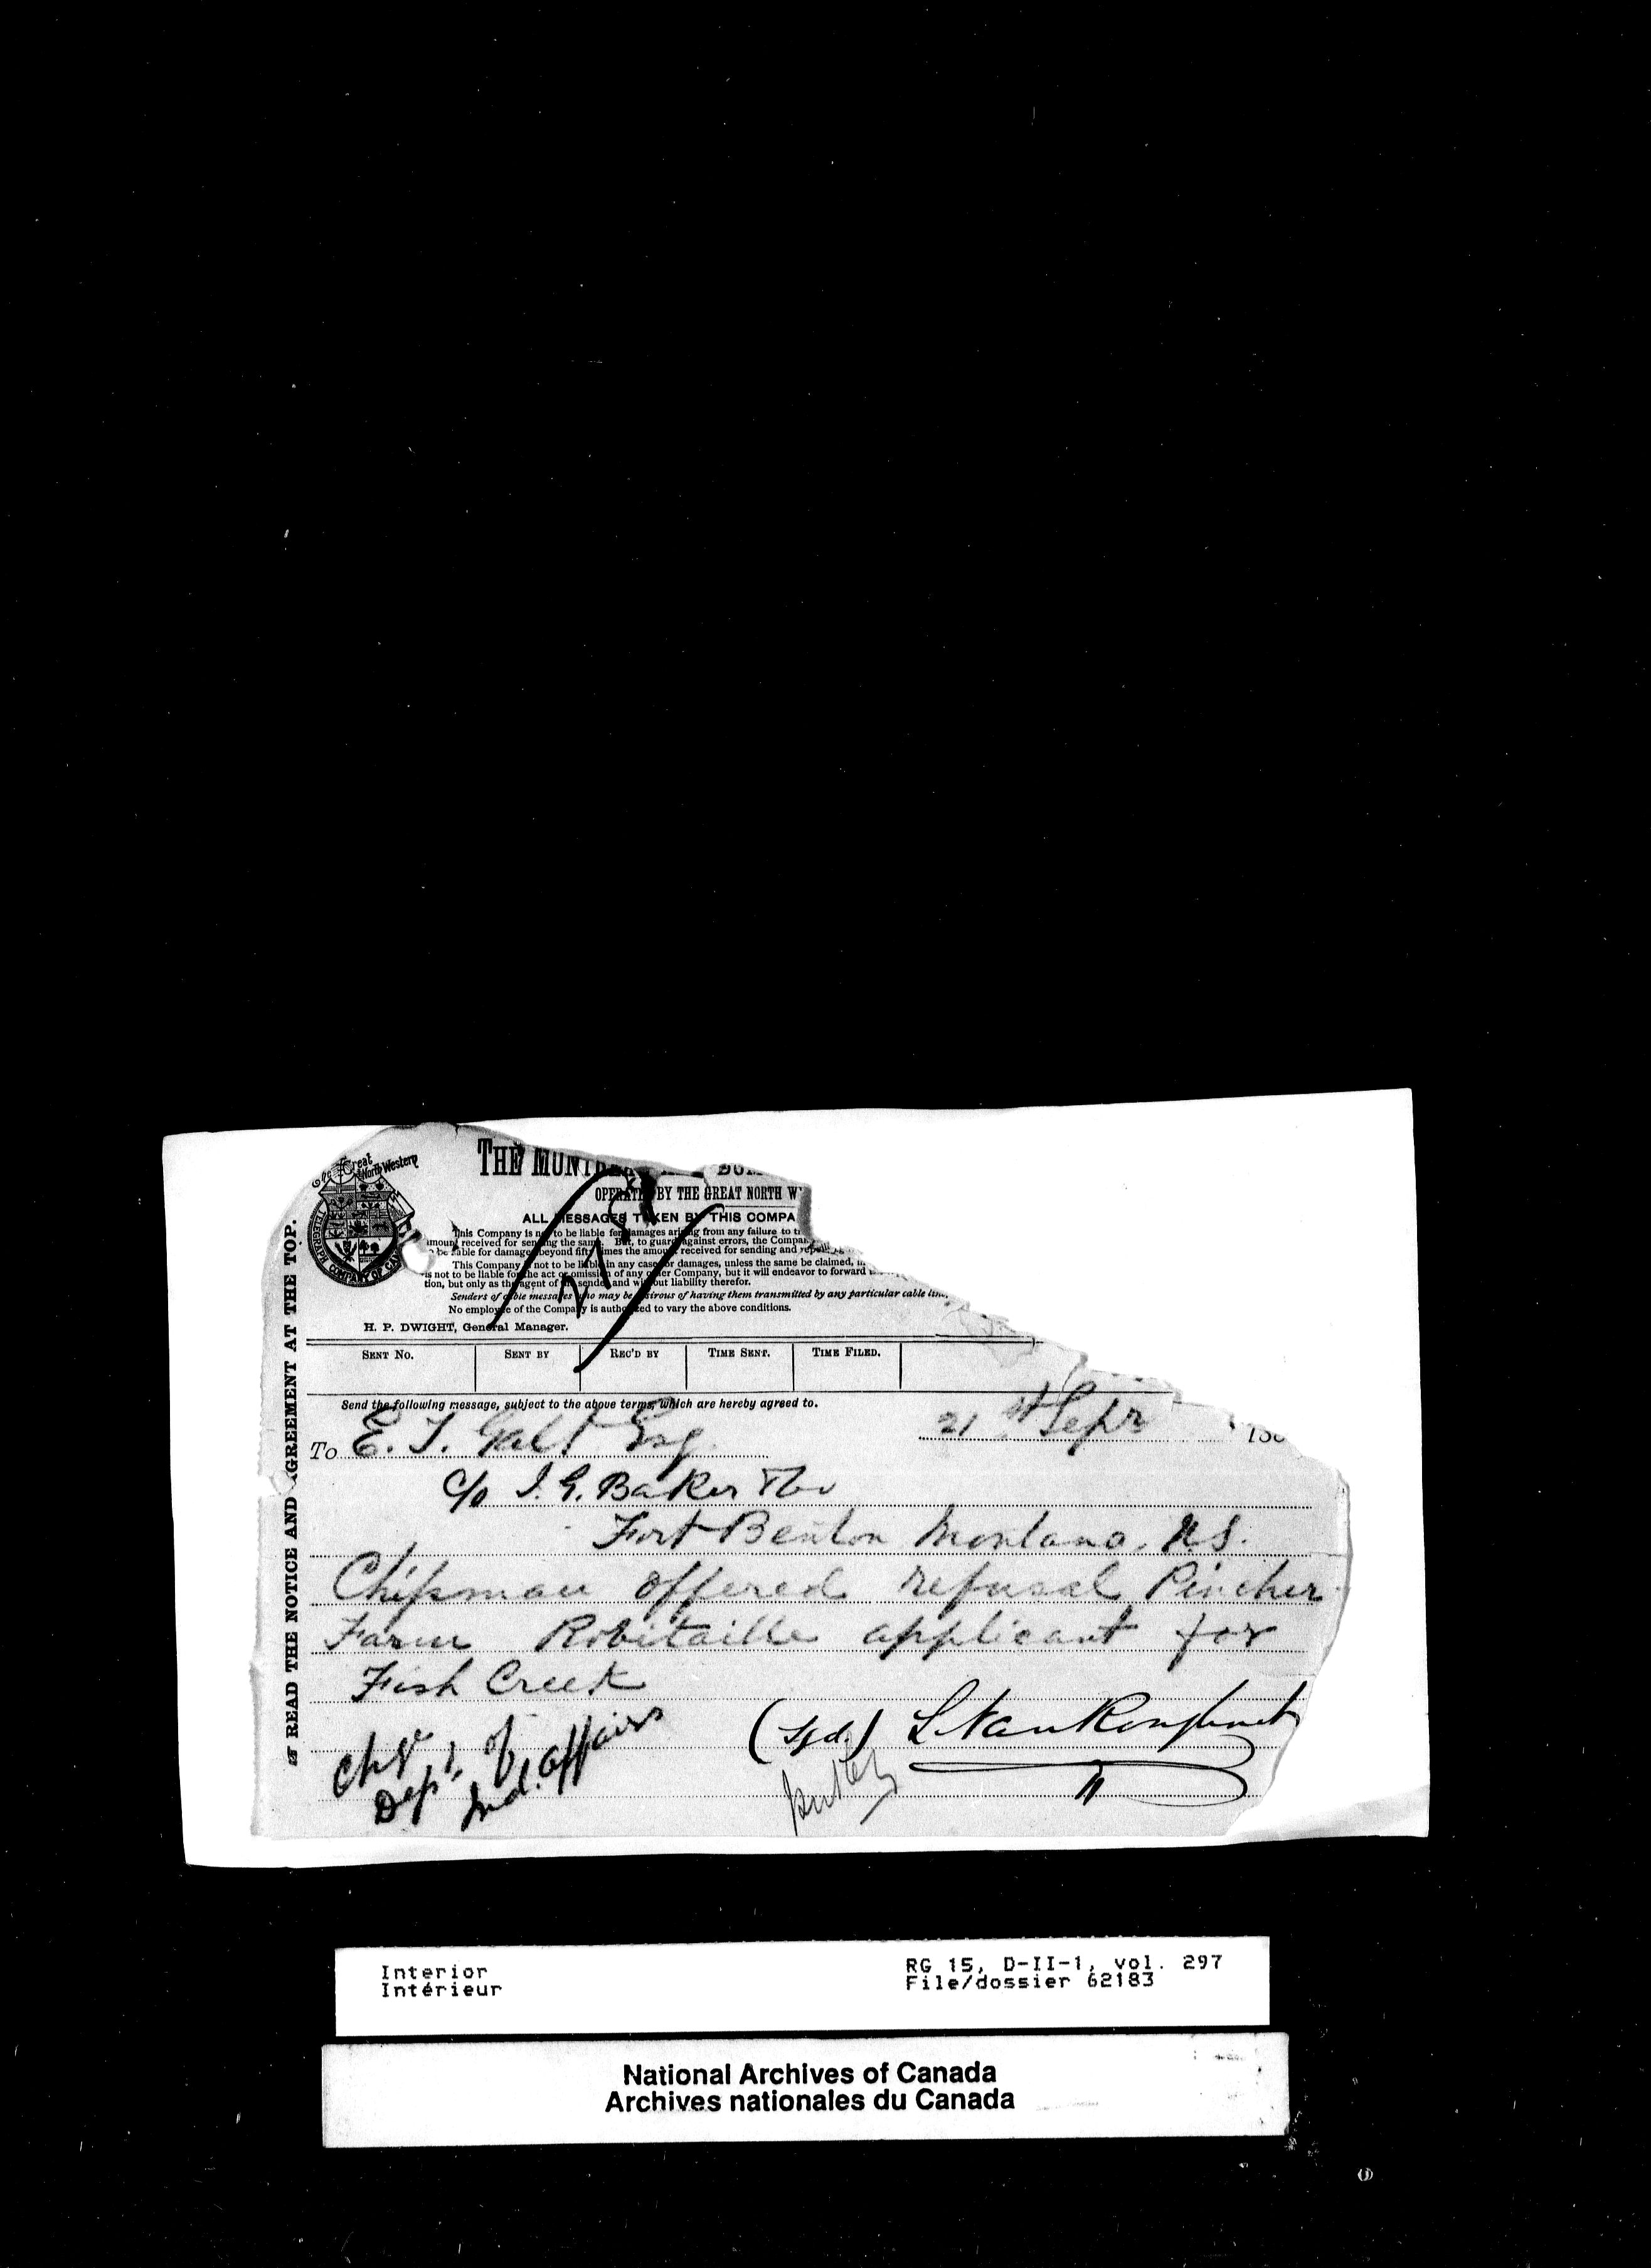 The Great North Western
TELEGRAPH COMPANY OF CANADA
THE MONTREAL DOM
OPERATED BY THE GREAT NORTH W
ALL MESSAGES TAKEN BY THIS COMPA
This Company is not to be liable for damages arising from any failure to t
amount received for sending the same. But, to guard against errors, the Compa
be liable for damages beyond fifty times the amount received for sending and
This Company is not to be liable in any case for damages, unless the same be claimed, in
is not to be liable for the act or omission of any other Company, but it will endeavor to forward
tion, but only as the agent of the sender and without liability therefor.
Senders of cable messages who may be desirous of having them transmitted by any particular cable line,
No employee of the Company is authorized to vary the above conditions.
H. P. DWIGHT, General Manager.
SENT No. SENT BY REC'D BY TIME SENT. TIME FILED.
Send the following message, subject to the above terms, which are hereby agreed to.
21st Sepr 188
To E. T. Galt Esq
c/o I. G. Baker & Co
Fort Benton Montana. U.S.
Chipman offered refusal Pincher
Farm Robitaille applicant for
Fish Creek
(Sgd.) L VanKoughnet
Chge
Dept. of
Ind. Affairs
READ THE NOTICE AND AGREEMENT AT THE TOP.
Interior
Intérieur
RG 15, D-II-1, vol. 297
File/dossier 62183
National Archives of Canada
Archives nationales du Canada